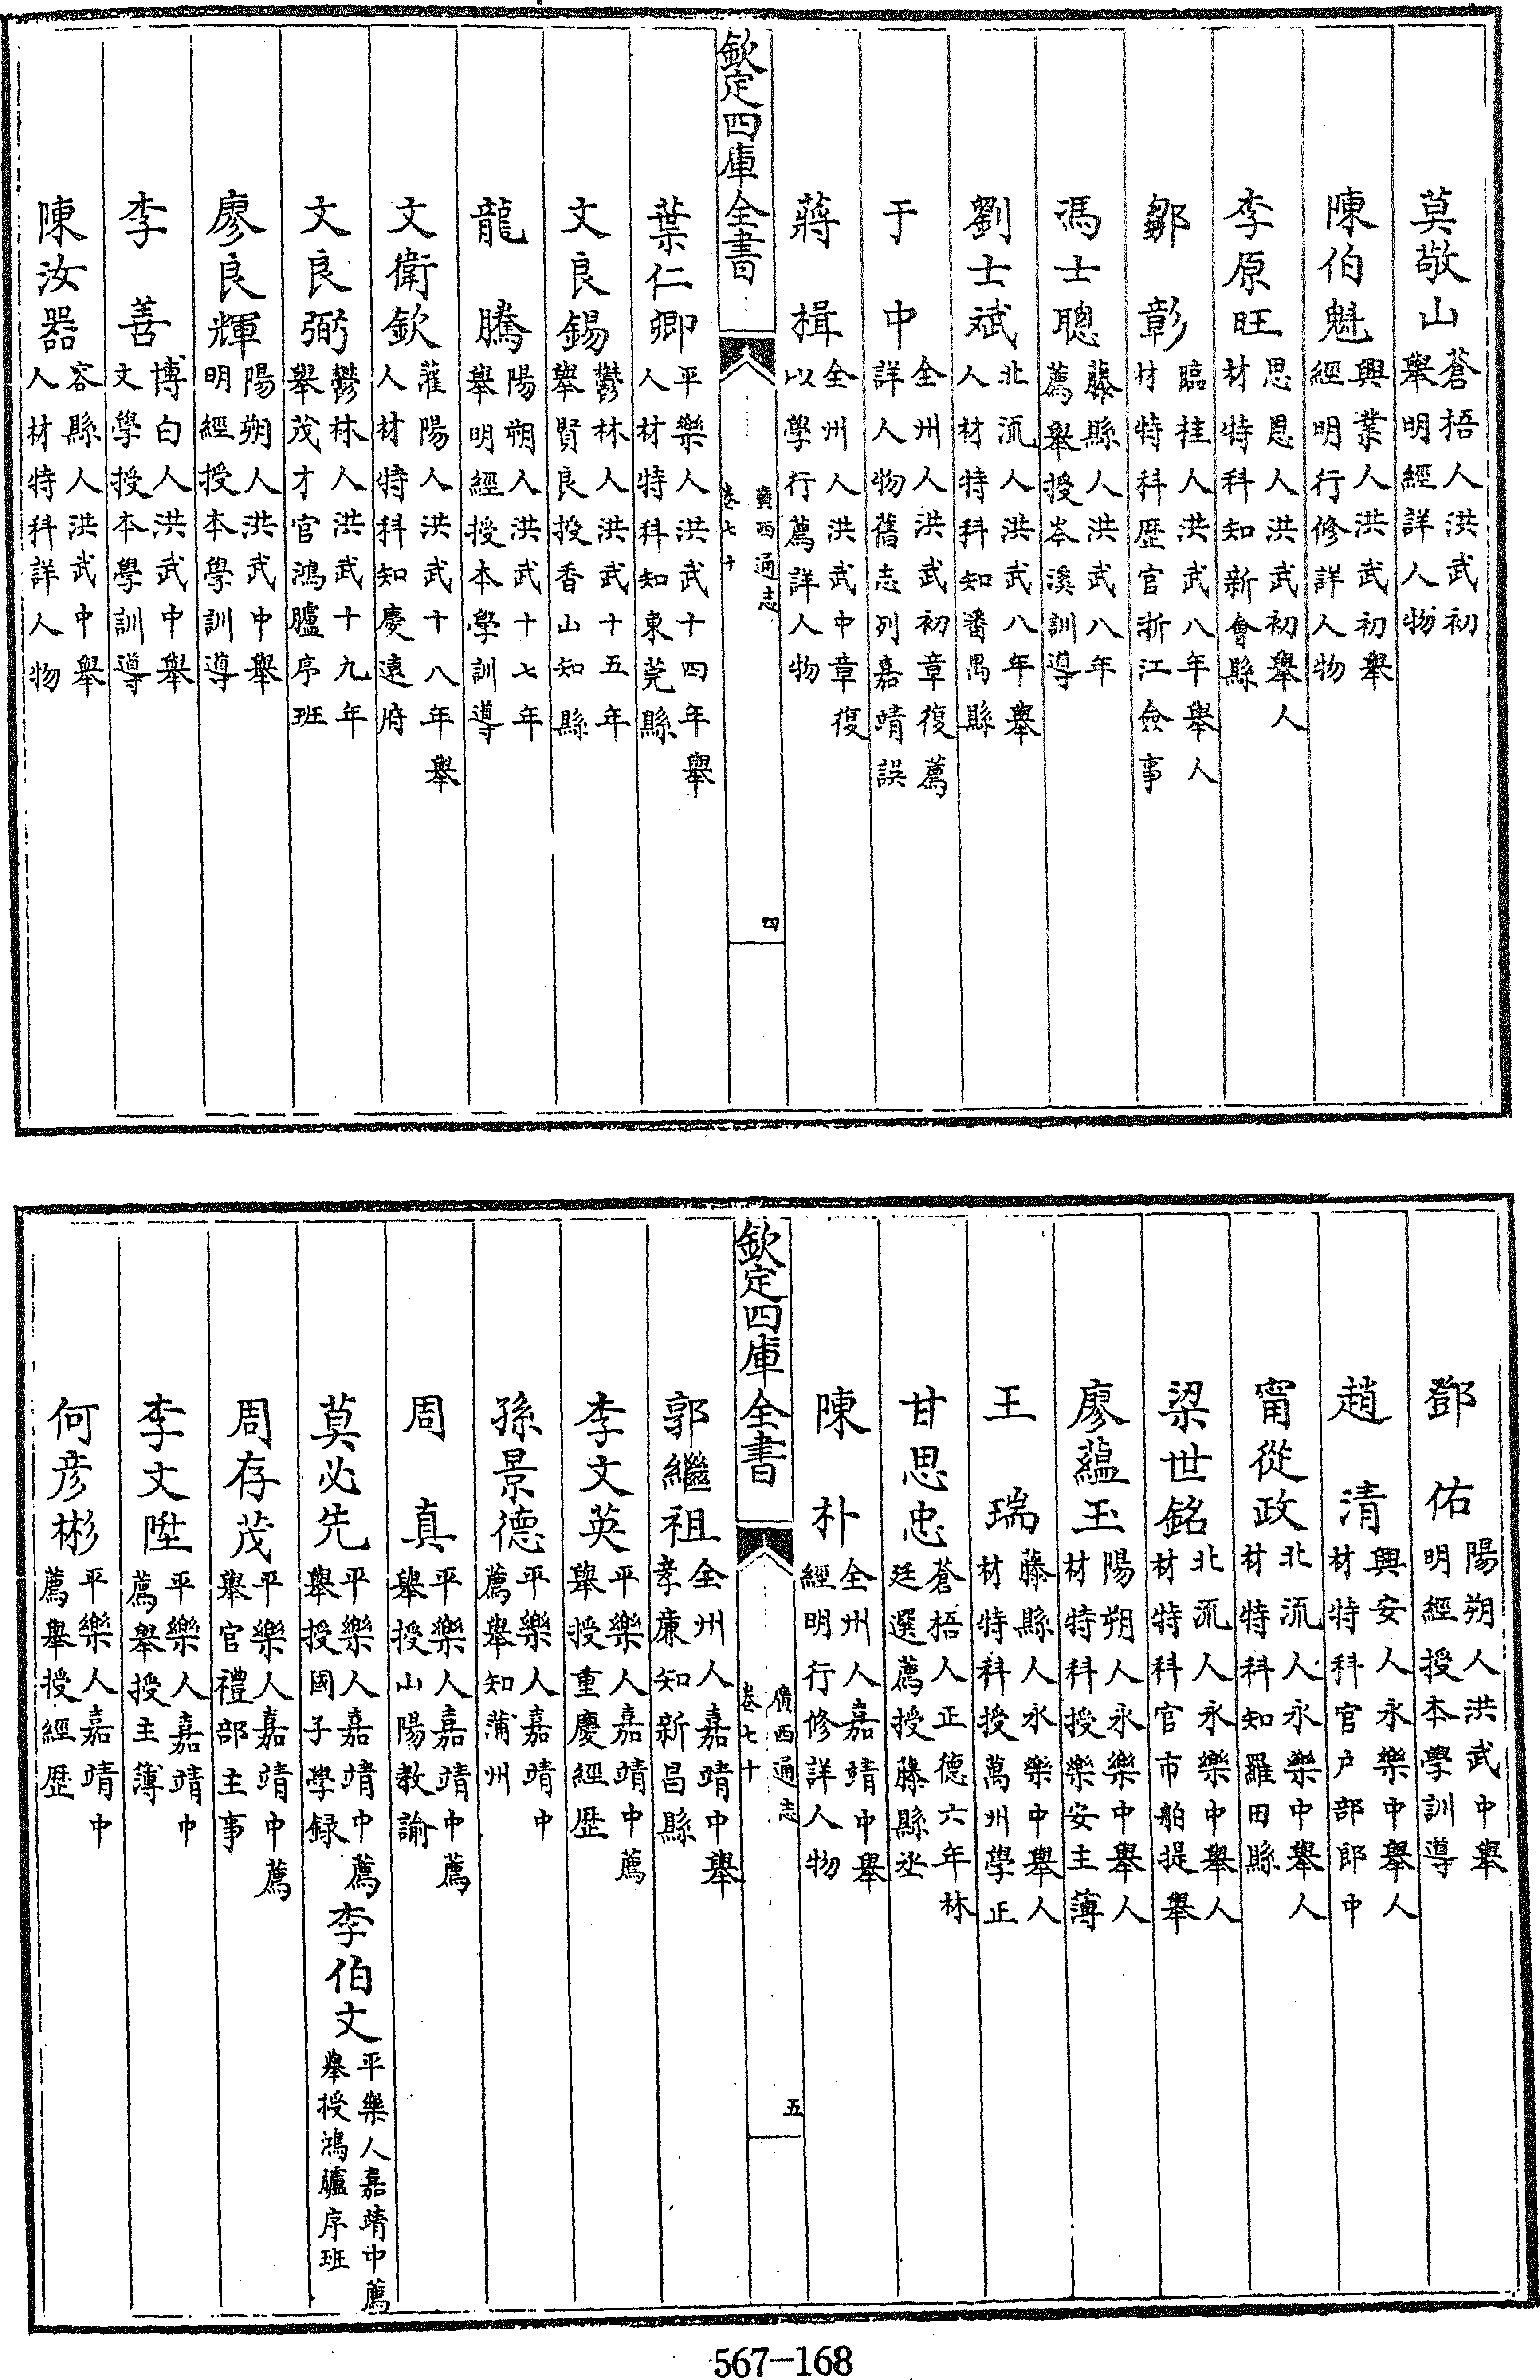 莫敬山蒼梧人洪武初舉明經詳人物
陳伯魁興業人洪武初舉經明行修詳人物
李原旺思恩人洪武初舉人材特科知新會縣
鄒彰臨桂人洪武八年舉人材特科歴官浙江僉事
馮士聰藤縣人洪武八年薦舉授岑溪訓導
劉士斌北流人洪武八年舉人材特科知番禺縣
于中全州人洪武初章復薦詳人物舊志列嘉靖誤
蔣楫全州人洪武中章復以學行薦詳人物
欽定四庫全書
廣西通志
卷七十
四
葉仁卿平樂人洪武十四年舉人材特科知東莞縣
文良錫鬱林人洪武十五年舉賢良授香山知縣
龍騰陽朔人洪武十七年舉明經授本學訓導
文衛欽灌陽人洪武十八年舉人材特科知慶遠府
文良弼鬱林人洪武十九年舉茂才官鴻臚序班
廖良輝陽朔人洪武中舉明經授本學訓導
李善博白人洪武中舉文學授本學訓導
陳汝器容縣人洪武中舉人材特科詳人物
鄧佑陽朔人洪武中舉明經授本學訓導
趙清興安人永樂中舉人材特科官戶部郎中
甯從政北流人永樂中舉人材特科知羅田縣
梁世銘北流人永樂中舉人材特科官市舶提舉
廖蘊玉陽朔人永樂中舉人材特科授樂安主薄
王瑞藤縣人永樂中舉人材特科授萬州學正
甘思忠蒼梧人正德六年林廷選薦授藤縣丞
陳朴全州人嘉靖中舉經明行修詳人物
欽定四庫全書
廣西通志
卷七十
五
郭繼祖全州人嘉靖中舉孝廉知新昌縣
李文英平樂人嘉靖中薦舉授重慶經歴
孫景德平樂人嘉靖中薦舉知蒲州
周真平樂人嘉靖中薦舉授山陽教諭
莫必先平樂人嘉靖中薦舉授國子學録李伯文平樂人嘉靖中薦舉授鴻臚序班
周存茂平樂人嘉靖中薦舉官禮部主事
李文陞平樂人嘉靖中薦舉授主薄
何彦彬平樂人嘉靖中薦舉授經歴
567-168